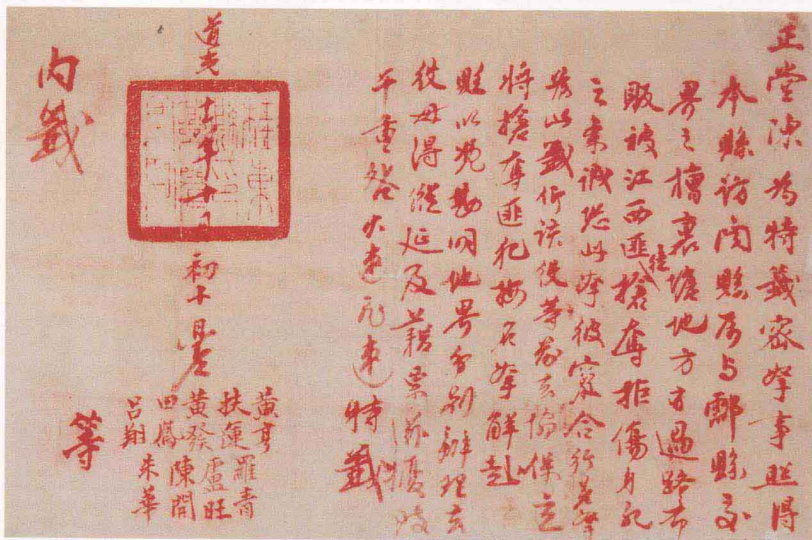 正堂陳 為特籤密拏事照得
本縣訪聞縣屬与酃縣交
界之檣裏壋地方有過路布
販被江西匪徒搶奪拒傷身死
之案誠恐此拏彼竄合行差拏
為此籤仰該役等前去協保立
將搶奪匪犯按名拏解赴
縣以凭勘明地界分別辦理去
役毋得縱延及藉票滋擾致
干重咎火速飛速特籤
道光
十一年十月
初十
黃亨
扶運 羅青
黃發 盧旺
田僞 陳開
呂翔 朱華
等
內籤